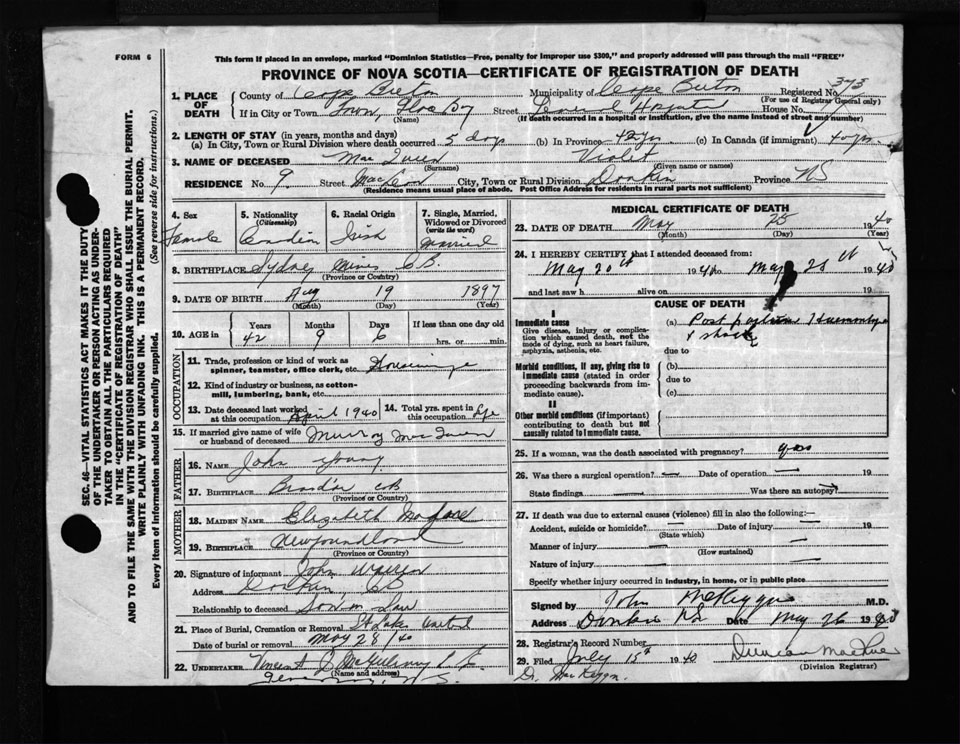 FORM 6
This form if placed in an envelope, marked "Dominion Statistics—Free, penalty for improper use $300," and properly addressed will pass through the mail "FREE"
PROVINCE OF NOVA SCOTIA—CERTIFICATE OF REGISTRATION OF DEATH
1. PLACE OF DEATH County of Cape Breton Municipality of Cape Breton Registered No. 373
(For use of Registrar General only)
If in City or Town Town, Glace Bay Street General House No.
(Name) (If death occurred in a hospital or institution, give the name instead of street and number)
2. LENGTH OF STAY (in years, months and days)
(a) In City, Town or Rural Division where death occurred 5 days (b) In Province 42 yrs (c) In Canada (if immigrant) 40 yrs
3. NAME OF DECEASED Mac Queen Violet
(Surname) (Given name or names)
RESIDENCE No. 9 Street MacLeod City, Town or Rural Division Donkin Province NS
(Residence means usual place of abode. Post Office Address for residents in rural parts not sufficient)
4. Sex Female
5. Nationality (Citizenship) Canadian
6. Racial Origin Irish
7. Single, Married, Widowed or Divorced (write the word) Married
8. BIRTHPLACE Sydney Mines C.B.
(Province or Country)
9. DATE OF BIRTH Aug 19 1897
(Month) (Day) (Year)
10. AGE in Years Months Days If less than one day old
42 9 6 hrs. or min.
OCCUPATION
11. Trade, profession or kind of work as spinner, teamster, office clerk, etc. Housewife
12. Kind of industry or business, as cotton-mill, lumbering, bank, etc.
13. Date deceased last worked at this occupation April 1940
14. Total yrs. spent in this occupation Life
15. If married give name of wife or husband of deceased Murray MacQueen
FATHER
16. NAME John Young
17. BIRTHPLACE
(Province or Country)
MOTHER
18. MAIDEN NAME Elizabeth
19. BIRTHPLACE Newfoundland
(Province or Country)
20. Signature of informant John
Address Donkin CB
Relationship to deceased Son in Law
21. Place of Burial, Cremation or Removal
Date of burial or removal May 28/40
22. UNDERTAKER Vincent
(Name and address)
N.S.
MEDICAL CERTIFICATE OF DEATH
23. DATE OF DEATH May 25 1940
(Month) (Day)
24. I HEREBY CERTIFY that I attended deceased from:
May 20th 1940 to May 1940
and last saw h alive on 19
CAUSE OF DEATH
I
Immediate cause
Give disease, injury or complication which caused death, not the mode of dying, such as heart failure, asphyxia, asthenia, etc.
(a) Post partum
& shock
due to
Morbid conditions, if any, giving rise to immediate cause (stated in order proceeding backwards from immediate cause)
(b)
due to
(c)
II
Other morbid conditions (if important) contributing to death but not causally related to immediate cause.
25. If a woman, was the death associated with pregnancy? yes
26. Was there a surgical operation? — Date of operation — 19
State findings — Was there an autopsy?
27. If death was due to external causes (violence) fill in also the following:—
Accident, suicide or homicide? — Date of injury — 19
(State which)
Manner of injury —
(How sustained)
Nature of injury —
Specify whether injury occurred in industry, in home, or in public place
Signed by John M.D.
Address Donkin NS Date May 26 1940
28. Registrar's Record Number
29. Filed July 15th 1940 Duncan
(Division Registrar)
SEC. 46—VITAL STATISTICS ACT MAKES IT THE DUTY
OF THE UNDERTAKER OR PERSON ACTING AS UNDERTAKER TO OBTAIN ALL THE PARTICULARS REQUIRED
IN THE "CERTIFICATE OF REGISTRATION OF DEATH"
AND TO FILE THE SAME WITH THE DIVISION REGISTRAR WHO SHALL ISSUE THE BURIAL PERMIT.
WRITE PLAINLY WITH UNFADING INK. THIS IS A PERMANENT RECORD.
Every item of information should be carefully supplied. (See reverse side for instructions.)